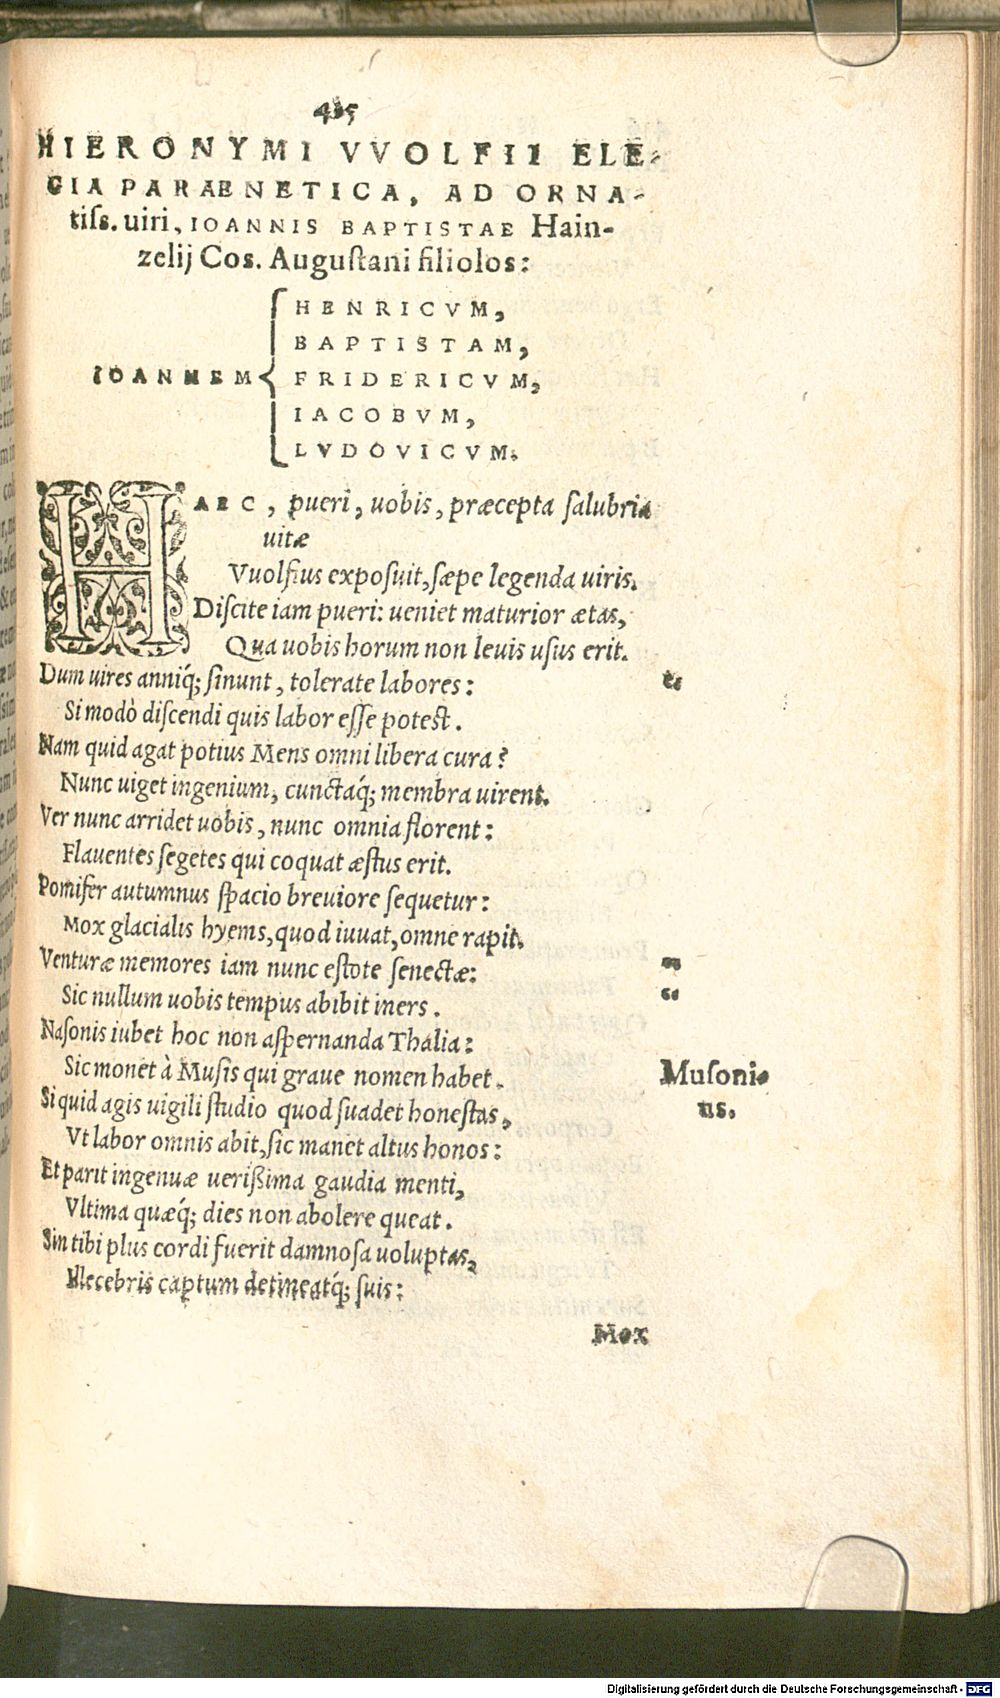 415
HIERONYMI VVOLFII ELE-
GIA PARAENETICA, AD ORNA-
tiſs. uiri, IOANNIS BAPTISTAE Hain-
zelij Cos. Auguſtani filiolos:
HENRICVM,
BAPTISTAM,
IOANNEM FRIDERICVM,
IACOBVM,
LVDOVICVM.
HAEC, pueri, uobis, præcepta ſalubria
uitæ
Vuolfius expoſuit, ſæpe legenda uiris.
Diſcite iam pueri: ueniet maturior ætas,
Qua uobis horum non leuis uſus erit.
Dum uires anniq́; ſinunt, tolerate labores: “
Si modò diſcendi quis labor eſſe poteſt.
Nam quid agat potius Mens omni libera cura?
Nunc uiget ingenium, cunctaq́; membra uirent.
Ver nunc arridet uobis, nunc omnia florent:
Flauentes ſegetes qui coquat æſtus erit.
Pomifer autumnus ſpacio breuiore ſequetur:
Mox glacialis hyems, quod iuuat, omne rapit.
Venturæ memores iam nunc eſtote ſenectæ: ”
Sic nullum uobis tempus abibit iners. “
Naſonis iubet hoc non aſpernanda Thalia:
Sic monet à Muſis qui graue nomen habet. Muſoni-
us.
Si quid agis uigili ſtudio quod ſuadet honeſtas,
Vt labor omnis abit, ſic manet altus honos:
Et parit ingenuæ ueriſſima gaudia menti,
Vltima quæq́; dies non abolere queat.
Sin tibi plus cordi fuerit damnoſa uoluptas,
Illecebris captum detineatq́; ſuis:
Mox
Digitalisierung gefördert durch die Deutsche Forschungsgemeinschaft - DFG